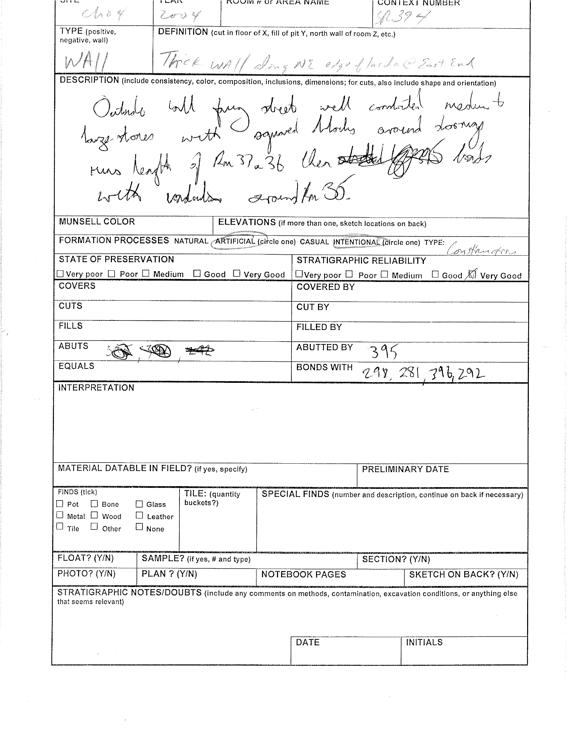 SITE YEAR ROOM # or AREA NAME CONTEXT NUMBER
Ch04 2004 SR394
TYPE (positive, negative, wall) DEFINITION (cut in floor of X, fill of pit Y, north wall of room Z, etc.)
WAll Thick wall along NE edge of @ East End
DESCRIPTION (include consistency, color, composition, inclusions, dimensions; for cuts, also include shape and orientation)
Outside wall facing street well constructed medium to
large stones with squared blocks around doorway
runs length of Rm 37 a 36 then bonds
with around Rm 35.
MUNSELL COLOR ELEVATIONS (if more than one, sketch locations on back)
FORMATION PROCESSES NATURAL ARTIFICIAL (circle one) CASUAL INTENTIONAL (circle one) TYPE: Construction
STATE OF PRESERVATION STRATIGRAPHIC RELIABILITY
Very poor Poor Medium Good Very Good Very poor Poor Medium Good Very Good
COVERS COVERED BY
CUTS CUT BY
FILLS FILLED BY
ABUTS ABUTTED BY 395
EQUALS BONDS WITH 298, 281, 396, 292
INTERPRETATION
MATERIAL DATABLE IN FIELD? (if yes, specify) PRELIMINARY DATE
FINDS (tick) TILE: (quantity buckets?) SPECIAL FINDS (number and description, continue on back if necessary)
Pot Bone Glass
Metal Wood Leather
Tile Other None
FLOAT? (Y/N) SAMPLE? (if yes, # and type) SECTION? (Y/N)
PHOTO? (Y/N) PLAN ? (Y/N) NOTEBOOK PAGES SKETCH ON BACK? (Y/N)
STRATIGRAPHIC NOTES/DOUBTS (include any comments on methods, contamination, excavation conditions, or anything else
that seems relevant)
DATE INITIALS